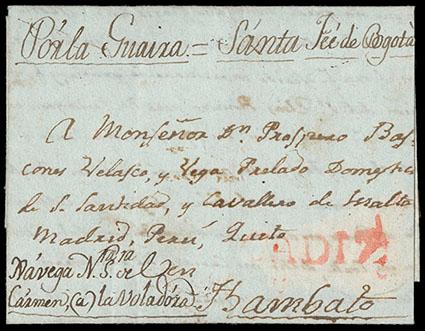 Pór la Guaira = Sánta Feé de Bogotà
A Monseñor Dn. Prospero Bas-
cones Velasco, y Vega Prelado Domestico
de S. Santidad, y Cavallero de
Madrid, Perú, Quito
Návega N. S.ra del en
Cármen, (a) la Voladóra Hambato